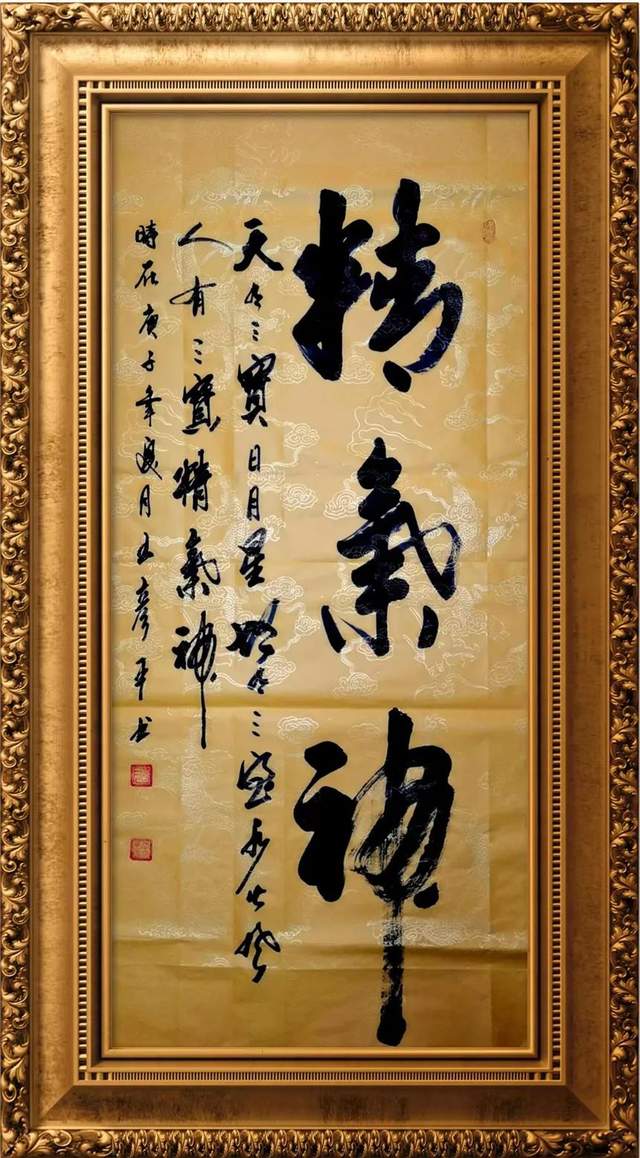 精氣神
天有三寶日月星地有三寶水火風
人有三寶精氣神
時在庚子年夏月王彥平书